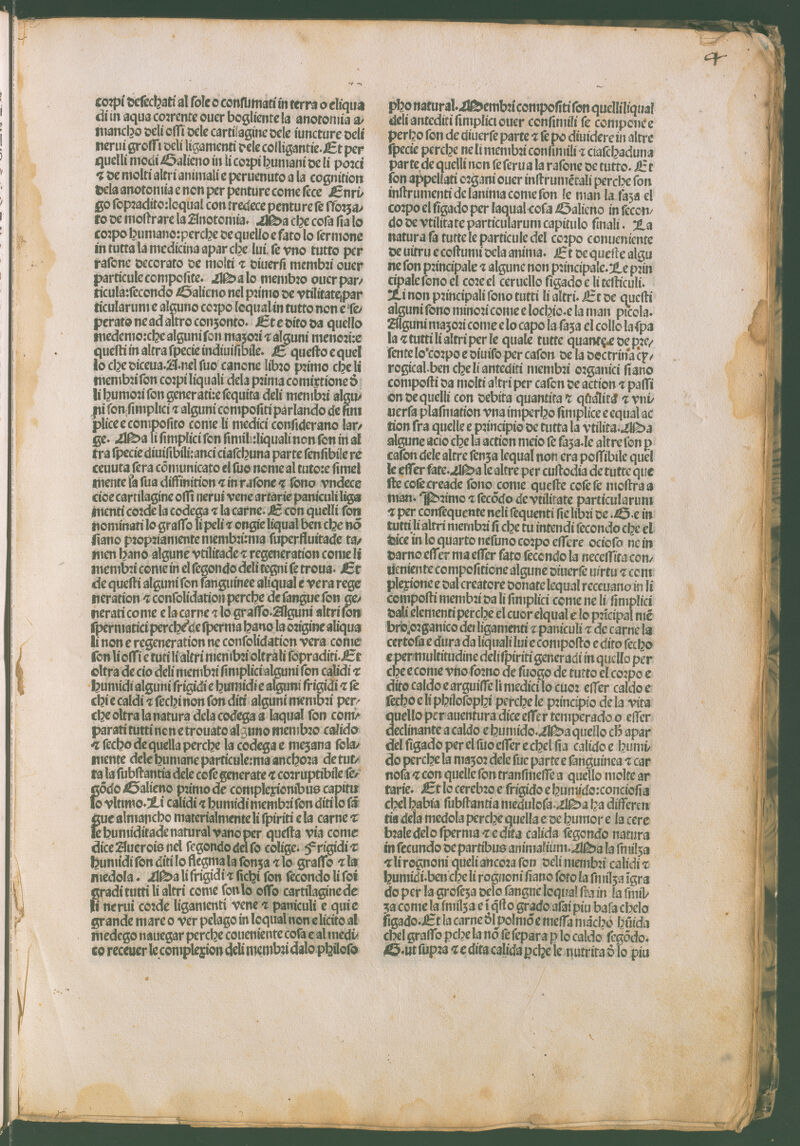 corpi desechati al sole o consumati in terra o eliqua
di in aqua corente ouer bogliente la anotomia a/
mancho deli ossi dele cartilagine dele iuncture deli
nerui grossi deli ligamenti dele colligantie. Et per
quelli modi Galieno in li corpi humani de li porci
⁊ de molti altri animali e peruenuto a la cognition
dela anotomia e non per penture come fece Enri/
go sopradito: loqual con tredece penture se sforza/
to de mostrare la Anotomia. Ma che cosa sia lo
corpo humano: perche de quello e fato lo sermone
in tutta la medicina apar che lui. se vno tutto per
rasone decorato de molti ⁊ diuersi membri ouer
particule composite. Ma lo membro ouer par/
ticula: secondo Galieno nel primo de vtilitate par
ticularum e alguno corpo loqual in tutto non e se/
perato ne ad altro conzonto. Et e dito da quello
medemo: che alguni son mazori ⁊ alguni menori: e
questi in altra specie indiuisibile. E questo e quel
lo che diceua. A. nel suo canone libro primo che li
membri son corpi liquali dela prima comixtione ð
li humori son generati: e sequita deli membri algu/
ni son simplici ⁊ alguni compositi parlando de sim
plice e composito come li medici considerano lar/
ge. Ma li simplici son simili: liquali non son in al
tra specie diuisibili: anci ciaschuna parte sensibile re
ceuuta sera cōmunicato el suo nome al tuto: e simel
mente la sua diffinition ⁊ in rasone ⁊ sono vndece
cioe cartilagine ossi nerui vene artarie paniculi liga
menti corde la codega ⁊ la carne. E con quelli son
nominati lo grasso li peli ⁊ ongie liqual ben che nō
siano propriamente membri: ma superfluitade ta/
men hano algune vtilitade ⁊ regeneration come li
membri come in el segondo deli tegni se troua. Et
de questi alguni son sanguinee aliqual e vera rege
neration ⁊ consolidation perche de sangue son ge/
nerati come e la carne ⁊ lo grasso. Alguni altri son
spermatici perche de sperma hano la origine aliqua
li non e regeneration ne consolidation vera come
son li ossi e tuti li altri membri oltra li sopraditi. Et
oltra de cio deli membri simplici alguni son calidi ⁊
humidi alguni frigidi e humidi e alguni frigidi ⁊ se
chi e caldi ⁊ sechi non son diti alguni membri per/
che oltra la natura dela codega a laqual son com/
parati tutti non e trouato alguno membro calido
⁊ secho de quella perche la codega e mezana sola/
mente dele humane particule: ma anchora de tut/
ta la substantia dele cose generate ⁊ corruptibile se/
gōdo Galieno primo de complexionibus capitu
lo vltimo. Li calidi ⁊ humidi membri son diti lo sā
gue almancho materialmente li spiriti e la carne ⁊
le humiditade natural vano per questa via come
dice Auerois nel segondo del so colige. Frigidi ⁊
humidi son diti lo flegma la sonza ⁊ lo grasso ⁊ la
medola. Ma li frigidi ⁊ sichi son secondo li soi
gradi tutti li altri come son lo osso cartilagine de
li nerui corde ligamenti vene ⁊ paniculi e qui e
grande mare o ver pelago in loqual non e licito al
medego nauegar perche coueniente cosa e al medi/
co receuer le complexion deli membri dalo philoso
pho natural. Membri compositi son quelli liqual
deli antediti simplici ouer consimili se compone e
perho son de diuerse parte ⁊ se po diuidere in altre
specie perche ne li membri consimili ⁊ ciaschaduna
parte de quelli non se serua la rasone de tutto. Et
son appellati organi ouer instrumētali perche son
instrumenti de lanima come son le man la faza el
corpo el figado per laqual cosa Galieno in secon/
do de vtilitate particularum capitulo finali. La
natura fa tutte le particule del corpo conueniente
de uitru e costumi dela anima. Et de queste algu
ne son principale ⁊ algune non principale. Le prin
cipale sono el core el ceruello figado e li testiculi.
Li non principali sono tutti li altri. Et de questi
alguni sono minori come e lochio. e la man picola.
Alguni mazori come e lo capo la faza el collo la spa
la ⁊ tutti li altri per le quale tutte quante e de pre/
sente lo corpo e diuiso per cason de la doctrina cy/
rogical. ben che li antediti membri organici siano
composti da molti altri per cason de action ⁊ passi
on de quelli con debita quantita ⁊ qualita ⁊ vni/
uersa plasmation vna imperho simplice e equal ac
tion fra quelle e principio de tutta la vtilita. Ma
algune acio che la action meio se faza. le altre son p
cason dele altre senza lequal non era possibile quel
le esser fate. Ma le altre per custodia de tutte que
ste cose create sono come queste cose se mostra a
man. Primo ⁊ secōdo de vtilitate particularum
⁊ per consequente neli sequenti sie libri de .G. e in
tutti li altri membri si che tu intendi secondo che el
dice in lo quarto nesuno corpo essere ocioso ne in
darno esser ma esser fato secondo la necessita con/
ueniente compositione algune diuerse uirtu ⁊ com
plexione e dal creatore donate lequal receuano in li
composti membri da li simplici come ne li simplici
dali elementi perche el cuor elqual e lo prīcipal mē
bro organico dei ligamenti ⁊ paniculi ⁊ de carne la
certosa e dura da liquali lui e composto e dito secho
e per multitudine deli spiriti generadi in quello per
che e come vno forno de fuogo de tutto el corpo e
dito caldo e arguisse li medici lo cuor esser caldo e
secho e li philosophi perche le principio de la vita
quello per auentura dice esser temperado o esser
declinante a caldo e humido. Ma quello ch̄ apar
del figado per el suo esser e chel sia calido e humi/
do perche la mazor dele sue parte e sanguinea ⁊ car
nosa ⁊ con quelle son transmesse a quello molte ar
tarie. Et lo cerebro e frigido e humido: conciosia
chel habia substantia medulosa. Ma ha differen
tia dela medola perche quella e de humor e la cere
brale delo sperma ⁊ e dita calida segondo natura
in secundo de partibus animalium. Ma la smilza
⁊ li rognoni queli ancora son deli membri calidi ⁊
humidi. ben che li rognoni siano soto la smilza ī gra
do per la grosseza delo sangue loqual sta in la smil/
za come la smilza e ī q̄sto grado asai piu basa chelo
figado. Et la carne ðl polmō e messa mācho hūida
chel grasso pche la nō se separa p lo caldo segōdo.
G. ut supra ⁊ e dita calida pche le nutrita ð lo piu